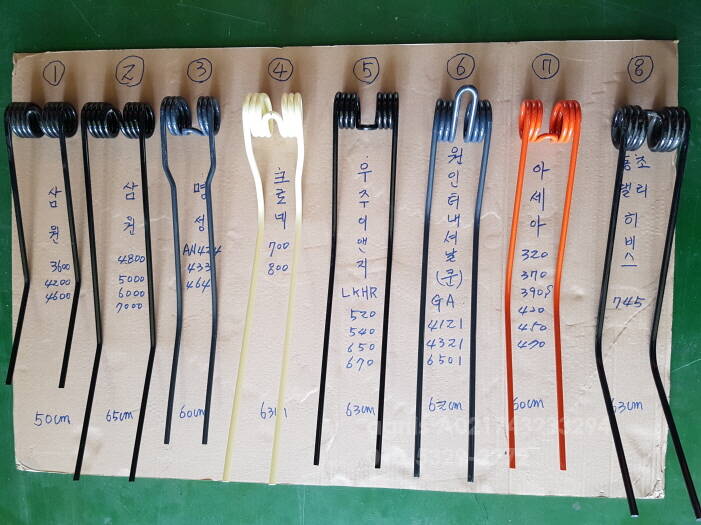 ①
삼
원
3600
4200
4600
50cm
②
삼
원
4800
5000
6000
7000
65cm
③
명
성
433
464
60cm
④
크
로
네
700
800
⑤
우
주
이
앤
지
LKHR
520
540
650
670
63cm
⑥
원
인
터
내
셔
날
(문)
GA
4121
4321
6501
⑦
아
세
아
320
370
390S
420
450
470
60cm
⑧
동
조
벨
리
히
비
스
745
63cm